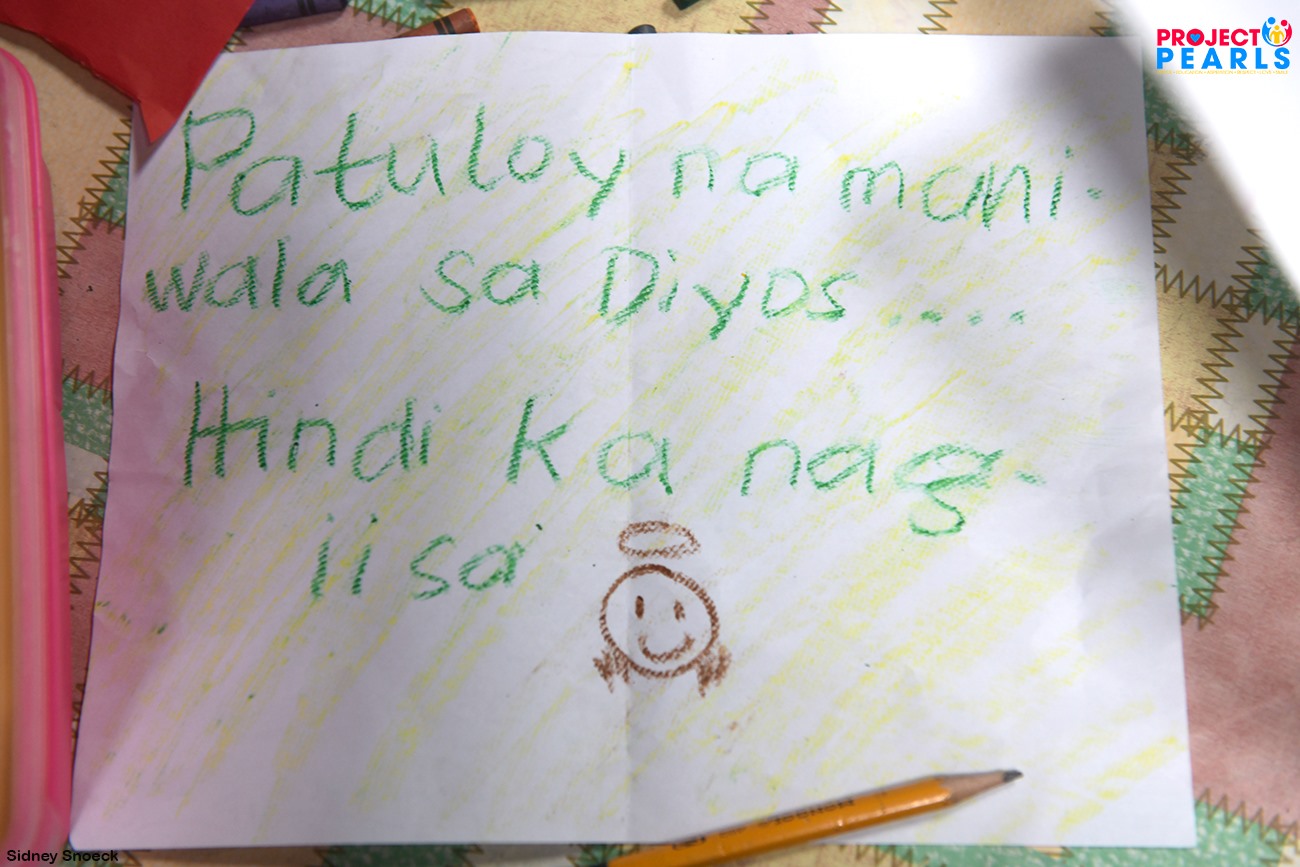 PROJECT
PEARLS
Patuloy na mani-
wala sa Diyos....
Hindi ka nag-
iisa
Sidney Snoeck